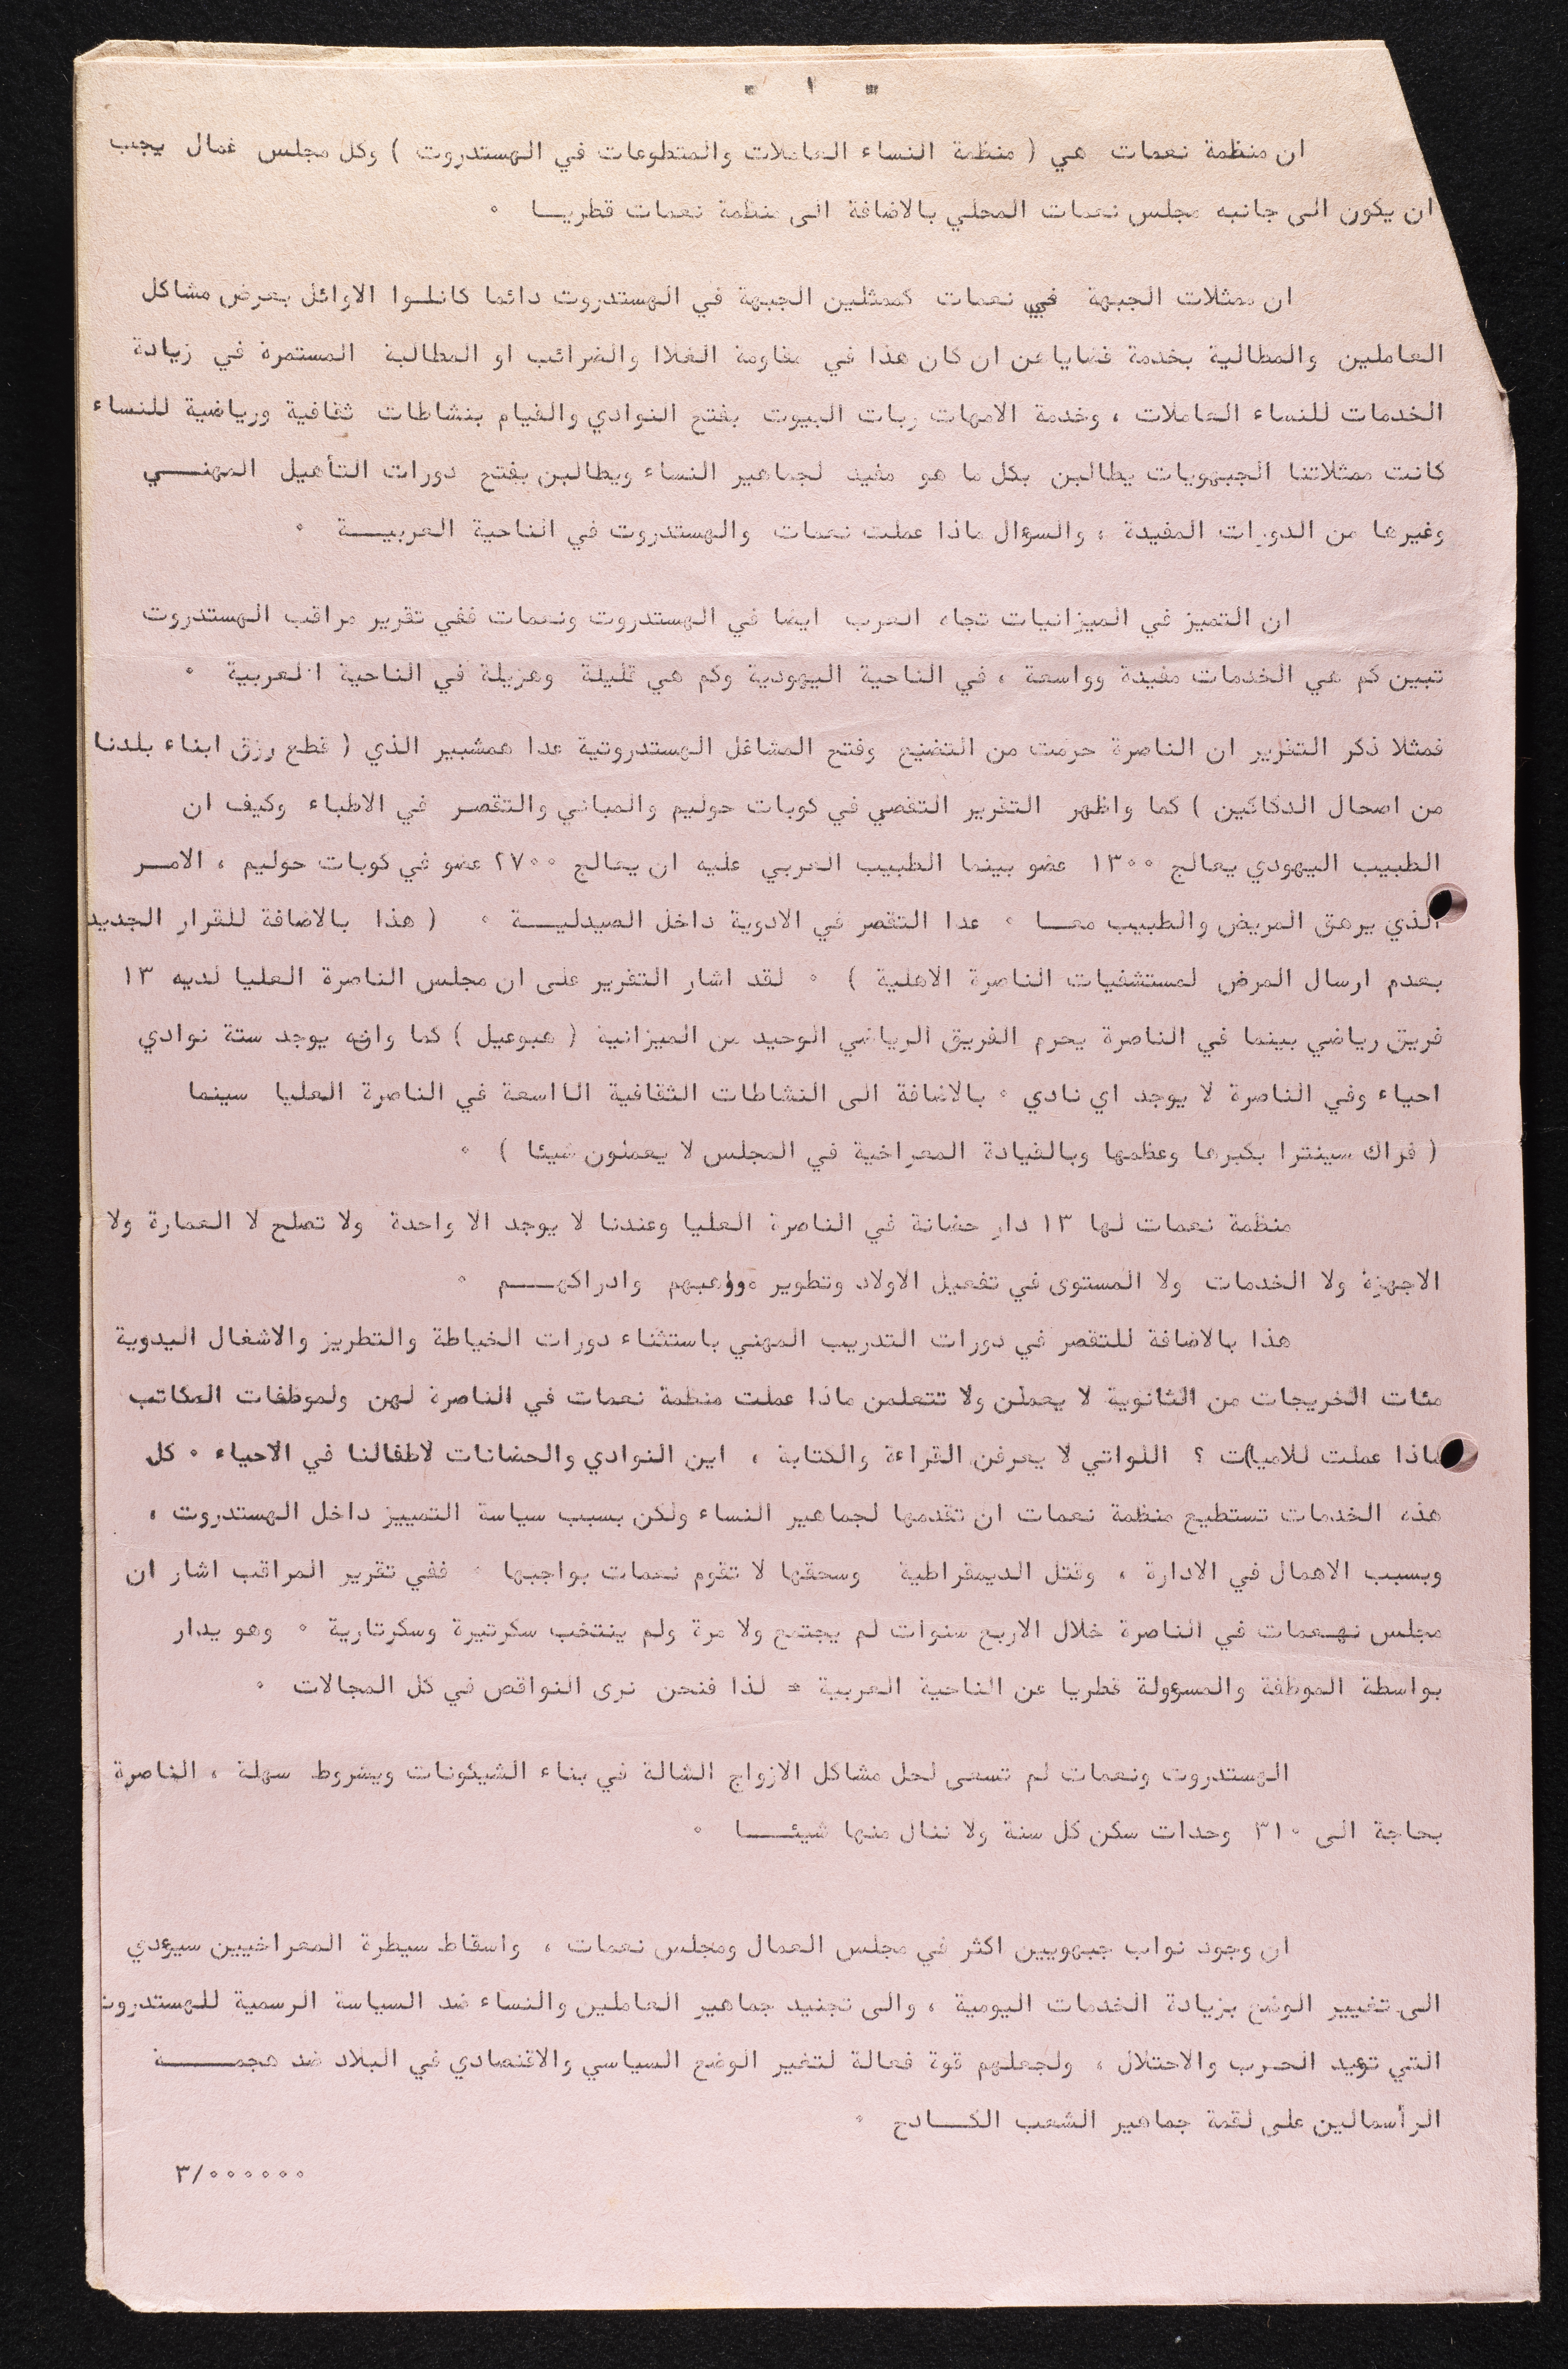 - ١ -
ان منظمة نعمات هي ( منظمة النساء العاملات والمتطوعات في الهستدروت ) وكل مجلس عمال يجب
ان يكون الى جانبه مجلس نعمات المحلي بالاضافة الى منظمة نعمات قطريــا ٠
ان ممثلات الجبهة في نعمات كممثلين الجبهة في الهستدروت دائما كانلـوا الاوائل بعرض مشاكل
العاملين والمطالية بخدمة قضاياعن ان كان هذا في مقاومة الغلاا والضرائب او المطالبة المستمرة في زيادة
الخدمات للنساء العاملات ، وخدمة الامهات ربات البيوت بفتح النوادي والقيام بنشاطات ثقافية ورياضية للنساء
كانت ممثلاتنا الجبهويات يطالبن بكل ما هو مفيد لجماهير النساء ويطالبن بفتح دورات التأهيل المهنــــي
وغيرها من الدورات المفيدة ، والسوءال ماذا عملت نعمات والهستدروت في الناحية العربيــــة ٠
ان التميز في الميزانيات تجاه العرب ايضا في الهستدروت ونعمات ففي تقرير مراقب الهستدروت
تبين كم هي الخدمات مفيدة وواسعة ، في الناحية اليهودية وكم هي قليلة وهزيلة في الناحية العربية ٠
فمثلا ذكر التقرير ان الناصرة حرمت من التضيع وفتح المشاغل الهستدروتية عدا همشبير الذي ( قطع رزق ابناء بلدنا
من اصحال الدكاكين ) كما واظهر التقرير التقصي في كوبات حوليم والمباني والتقصر في الاطباء وكيف ان
الطبيب اليهودي يعالج ١٣٠٠ عضو بينما الطبيب العربي عليه ان يعالج ٢٧٠٠ عضو في كوبات حوليم ، الامــر
الذي يرهق المريض والطبيب معــا ٠ عدا التقصر في الادوية داخل الصيدليــــة ٠ ( هذا بالاضافة للقرار الجديد
بعدم ارسال المرض لمستشفيات الناصرة الاهلية ) ٠ لقد اشار التقرير على ان مجلس الناصرة العليا لديه ١٣
فريق رياضي بينما في الناصرة يحرم الفريق الرياضي الوحيد من الميزانية ( هبوعيل ) كما وانه يوجد ستة نوادي
احياء وفي الناصرة لا يوجد اي نادي ٠ بالاضافة الى النشاطات الثقافية الااسعة في الناصرة العليا سينما
( فراك سينترا بكبرها وعظمها وبالقيادة المعراخية في المجلس لا يعملون شيئا ) ٠
منظمة نعمات لها ١٣ دار حضانة في الناصرة العليا وعندنا لا يوجد الا واحدة ولا تصلح لا العمارة ولا
الاجهزة ولا الخدمات ولا المستوى في تفعيل الاولاد وتطوير مواهبهم وادراكهــــم ٠
هذا بالاضافة للتقصر في دورات التدريب المهني باستثناء دورات الخياطة والتطريز والاشغال اليدوية
مئات الخريجات من الثانوية لا يعملن ولا تتعلمن ماذا عملت منظمة نعمات في الناصرة لهن ولموظفات المكاتب
ماذا عملت للاميات ؟ اللواتي لا يعرفن القراءة والكتابة ، اين النوادي والحضانات لاطفالنا في الاحياء ٠ كل
هذه الخدمات تستطيع منظمة نعمات ان تقدمها لجماهير النساء ولكن بسبب سياسة التمييز داخل الهستدروت ،
وبسبب الاهمال في الادارة ، وقتل الديمقراطية وسحقها لا تقوم نعمات بواجبها ٠ ففي تقرير المراقب اشار ان
مجلس نهـعمات في الناصرة خلال الاربع سنوات لم يجتمع ولا مرة ولم ينتخب سكرتيرة وسكرتارية ٠ وهو يدار
بواسطة الموظفة والمسوءولة قطريا عن الناحية العربية = لذا فنحن نرى النواقص في كل المجالات ٠
الهستدروت ونعمات لم تسعى لحل مشاكل الازواج الشالة في بناء الشيكونات وبشروط سهلة ، الناصرة
بحاجة الى ٣١٠ وحدات سكن كل سنة ولا ننال منها شيئــــا ٠
ان وجود نواب جبهويين اكثر في مجلس العمال ومجلس نعمات ، واسقاط سيطرة المعراخيين سيوءدي
الى تغيير الوضع بزيادة الخدمات اليومية ، والى تجنيد جماهير العاملين والنساء ضد السياسة الرسمية للهستدروت
التي توءيد الحرب والاحتلال ، ولجعلهم قوة فعالة لتغير الوضع السياسي والاقتصادي في البلاد ضد هجمــــــة
الرأسمالين على لقمة جماهير الشعب الكــــادح ٠
٣/٠٠٠٠٠٠